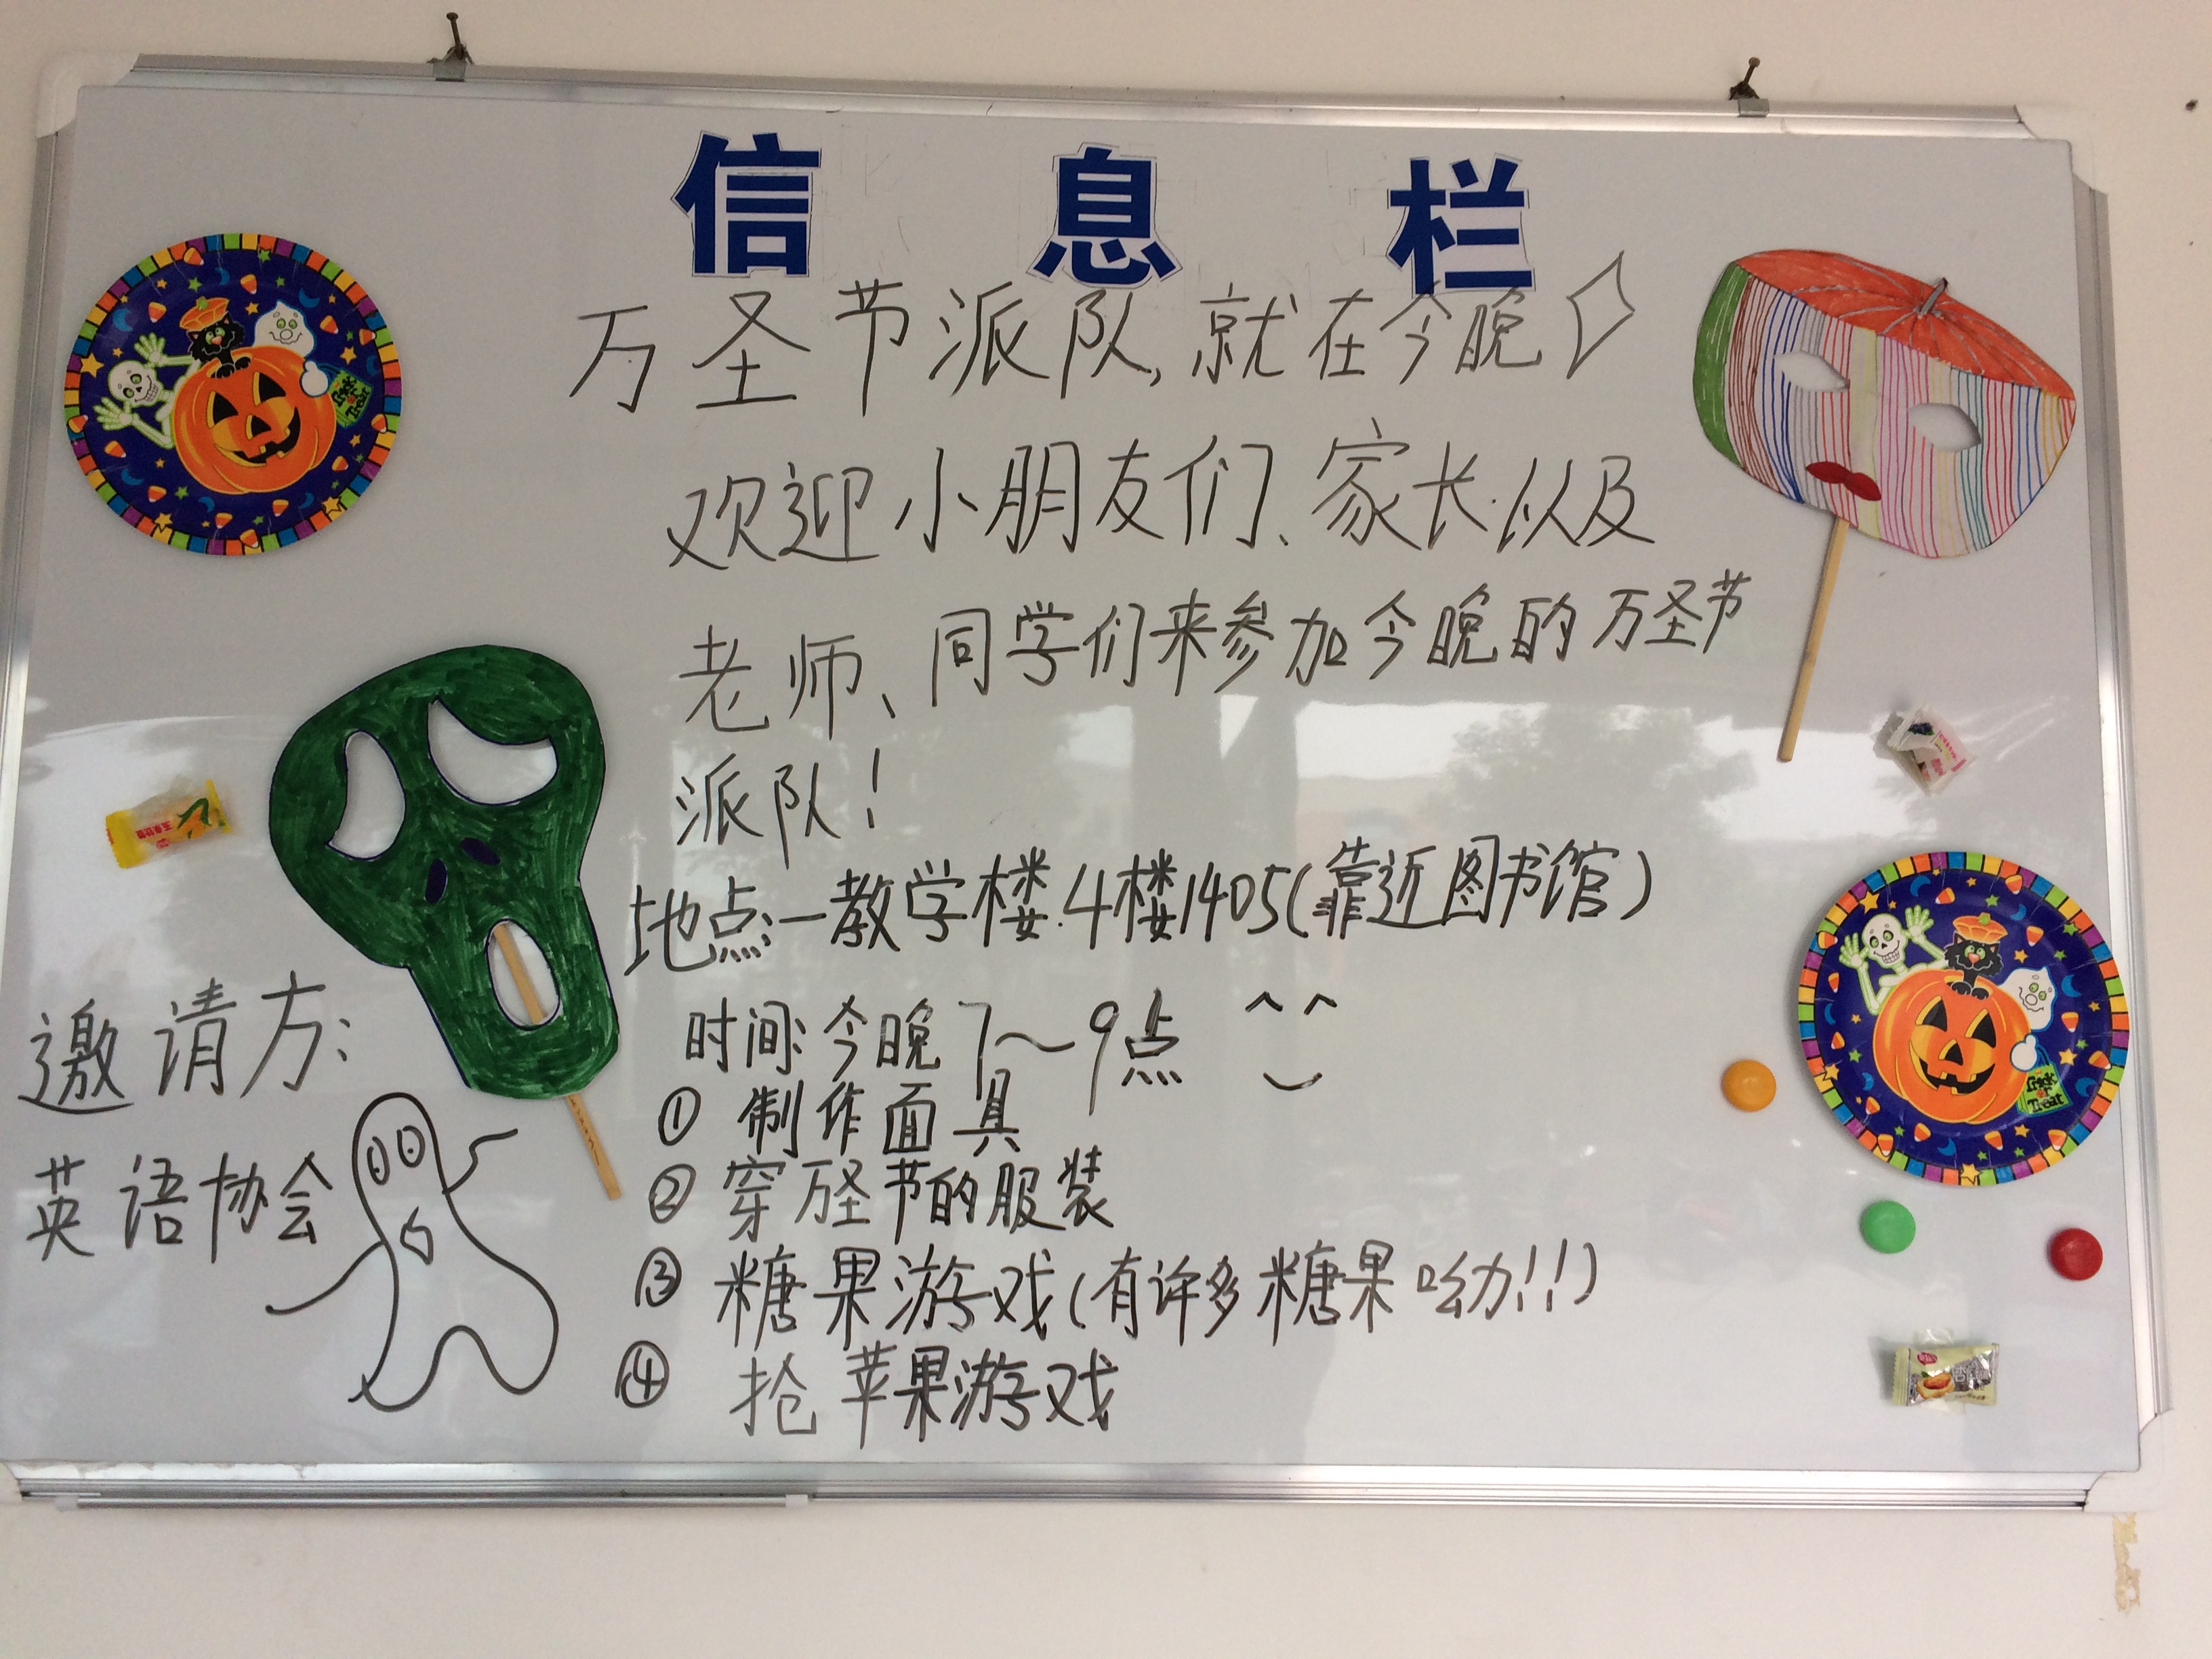 信息栏
万圣节派队,就在今晚
欢迎小朋友们、家长以及
老师、同学们来参加今晚的万圣节
派队!
地点:一教学楼.4楼1405(靠近图书馆)
时间:今晚7～9点
① 制作面具
② 穿万圣节的服装
③ 糖果游戏(有许多糖果呦!!)
④ 抢苹果游戏
邀请方:
英语协会
Trick or Treat
Trick or Treat